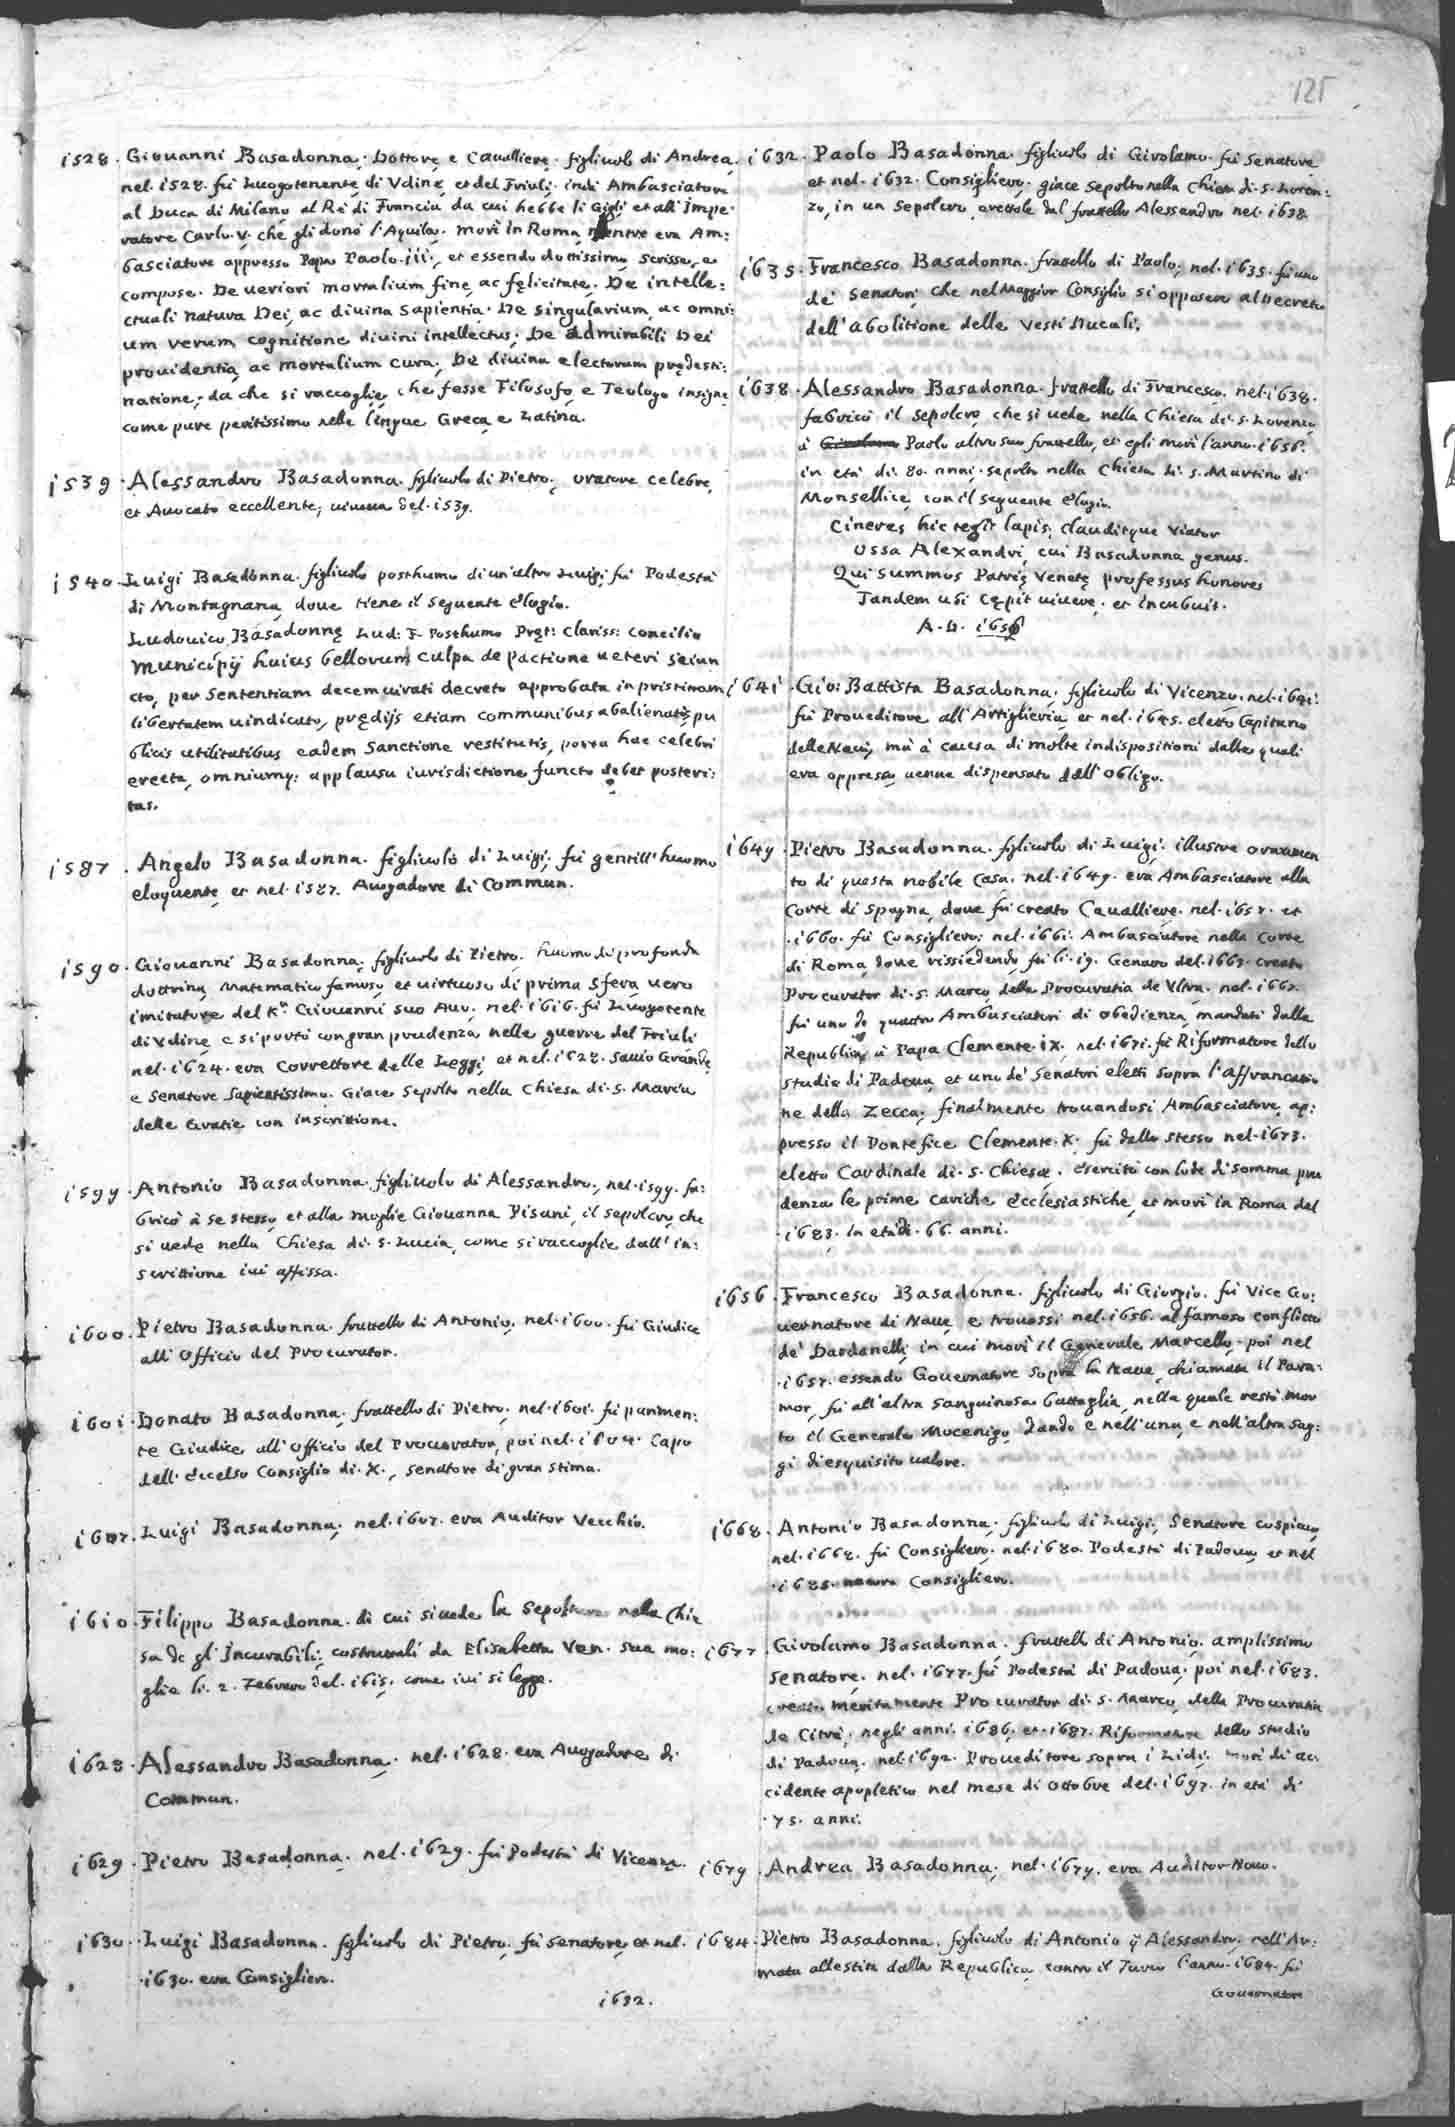 125
1528. Giouanni Basadonna; Dottore, e Caualliere, figliuolo di Andrea,
nel. 1528. fù Luogotenente di Vdine, et del Friuli; indi Ambasciatore
al Duca di Milano, al Rè di Francia, da cui hebbe li Gigli, et all' Impe:
ratore Carlo. V. che gli donò l'Aquila. morì in Roma, mentre era Am:
basciatore appresso Papa Paolo. iii:, et essendo dottissimo, scrisse, e
compose. De ueriori mortalium fine, ac fęlicitate. De intelle:
ctuali natura Dei, ac diuina sapientia. De singularium, ac omni:
um rerum cognitione diuini intellectus; De admirabili Dei
prouidentia, ac mortalium cura; De diuina electorum prędesti:
natione; da che si raccoglie, che fosse Filosofo, e Teologo insigne,
come pure peritissimo nelle lingue Greca, e Latina.
1539. Alessandro Basadonna. figliuolo di Pietro; oratore celebre,
et Auocato eccellente; uiueua del. 1539.
1540. Luigi Basadonna. figliuolo posthumo di un'altro Luigi, fù Podestà
di Montagnana, doue tiene il seguente elogio.
Ludouico Basadonnę Lud: F. Posthumo Pręt: Clariss: Concilio
Municipij huius bellorum culpa de pactione ueteri seiun
cto, per sententiam decemuirati decreto approbata in pristinam
libertatem uindicato, prędijs etiam communibus abalienatis, pu
blicis utilitatibus eadem sanctione restitutis, porta hac celebri
erecta, omniumq: applausu iurisdictione functo debet posteri:
tas.
1587. Angelo Basadonna. figliuolo di Luigi; fù gentill'huomo
eloquente, et nel. 1587. Auogadore di Commun.
1590. Giouanni Basadonna; figliuolo di Pietro; huomo di profonda
dottrina, Matematico famoso, et uirtuoso di prima sfera, uero
imitatore del Kr. Giouanni suo Auo; nel. 1616. fù Luogotente
di Vdine, e si portò con gran prudenza nelle guerre del Friuli
nel. 1624. era Correttore delle Leggi, et nel. 1628. Sauio Grande,
e Senatore Sapientissimo. Giace sepolto nella Chiesa di. S. Maria
delle Gratie con inscrittione.
1599. Antonio Basadonna. figliuolo di Alessandro;, nel. 1599. fa:
bricò à se stesso, et alla moglie Giouanna Pisani, il sepolcro, che
si uede nella Chiesa di. S. Lucia, come si raccoglie dall' in:
scrittione iui affissa.
1600. Pietro Basadonna. frattello di Antonio, nel. 1600. fù Giudice
all' Officio del Procurator.
1601. Donato Basadonna; frattello di Pietro; nel. 1601. fù parimen:
te Giudice all' Officio del Procurator, poi nel. 1604. Capo
dell' Eccelso Consiglio di. X., senatore di gran stima.
1607. Luigi Basadonna; nel. 1607. era Auditor Vecchio.
1610. Filippo Basadonna. di cui si uede la sepoltura nella Chie
sa de gl' Incurabili; costruttali da Elisabetta Ven. sua mo:
glie li. 2. Febraro del. 1615. come iui si legge.
1628. Alessandro Basadonna; nel. 1628. era Auogadore di
Commun.
1629. Pietro Basadonna; nel. 1629. fù Podestà di Vicenza.
1630. Luigi Basadonna. figliuolo di Pietro, fù senatore, et nel.
.1630. era Consiglier.
1632.
1632. Paolo Basadonna. figliuolo di Girolamo. fù Senatore
et nel. 1632. Consigliero; giace sepolto nella Chiesa di. S. Loren:
zo, in un sepolcro, erettole dal frattello Alessandro nel. 1638.
1635. Francesco Basadonna. frattello di Paolo; nel. 1635. fù uno
de' Senatori, che nel Maggior Consiglio si opposero al Decreto
dell' abolitione delle Vesti Ducali.
1638. Alessandro Basadonna. frattello di Francesco. nel. 1638.
fabricò il sepolcro, che si uede nella Chiesa di. S. Lorenzo,
à Paolo altro suo frattello, et egli morì l'anno. 1656.
in età di. 80. anni; sepolto nella Chiesa di. S. Martino di
Monsellice, con il seguente elogio.
Cineres hic tegit lapis, clauditque Viator
Ossa Alexandri, cui Basadonna genus.
Qui summos Patrię Venetę professus honores
Tandem ubi cępit uiuere, et incubuit.
A. D. 1656
1641. Gio: Battista Basadonna; figliuolo di Vicenzo, nel. 1641.
fù Proueditore all' Artiglieria, et nel. 1645. eletto Capitano
delle Naui, mà à causa di molte indispositioni dalle quali
era oppresso, uenne dispensato dall' obligo.
1649. Pietro Basadonna. figliuolo di Luigi; illustre ornamen
to di questa nobile Casa. nel. 1649. era Ambasciatore alla
Corte di Spagna, doue fù creato Caualliere. nel. 1657. et
.1660. fù Consigliero; nel. 1661. Ambasciatore nella Corte
di Roma, doue rissiedendo, fù li. 19. Genaro del. 1667. creato
Procurator di. S. Marco, della Procuratia de Vltra. nel. 1667.
fù uno de quattro Ambasciatori di obedienza, mandati dalla
Republica à Papa Clemente. ix. nel. 1671. fù Riformatore dello
studio di Padoua, et uno de' Senatori eletti sopra l'affrancatio
ne della Zecca; finalmente trouandosi Ambasciatore, ap:
presso il Pontefice Clemente. X. fù dallo stesso nel. 1673.
eletto Cardinale di. S. Chiesa. esercitò con lode di somma pru
denza le prime cariche Ecclesiastiche, et morì in Roma del
.1683. in età di. 66. anni.
1656. Francesco Basadonna. figliuolo di Giorgio. fù Vice Go:
uernatore di Naue, e trouossi nel. 1656. al famoso conflitto
de' Dardanelli, in cui morì il Generale Marcello. poi nel
.1657. essendo Gouernatore sopra la Naue, chiamata il Para:
mor, fù all' altra sanguinosa battaglia, nella quale restò mor
to il Generale Mocenigo, dando e nell' una, e nell' altra sag:
gi di esquisito ualore.
1668. Antonio Basadonna; figliuolo di Luigi; Senatore cospicuo,
nel. 1668. fù Consigliero; nel. 1680. Podestà di Padoua, et nel
.1685. Consigliero.
1677. Girolamo Basadonna; frattello di Antonio; amplissimo
senatore; nel. 1677. fù Podestà di Padoua; poi nel. 1683.
creato meritamente Procurator di. S. Marco, della Procuratia
de Citra; negli anni. 1686. et. 1687. Riformatore dello studio
di Padoua. nel. 1692. Proueditore sopra i Lidi; morì di ac
cidente apopletico nel mese di ottobre del. 1697. in età di
.75. anni.
1679. Andrea Basadonna; nel. 1679. era Auditor Nouo.
1684. Pietro Basadonna. figliuolo di Antonio q̃ Alessandro, nell' Ar:
mata allestita dalla Republica, contro il Turco l'anno. 1684. fù
Gouernatore